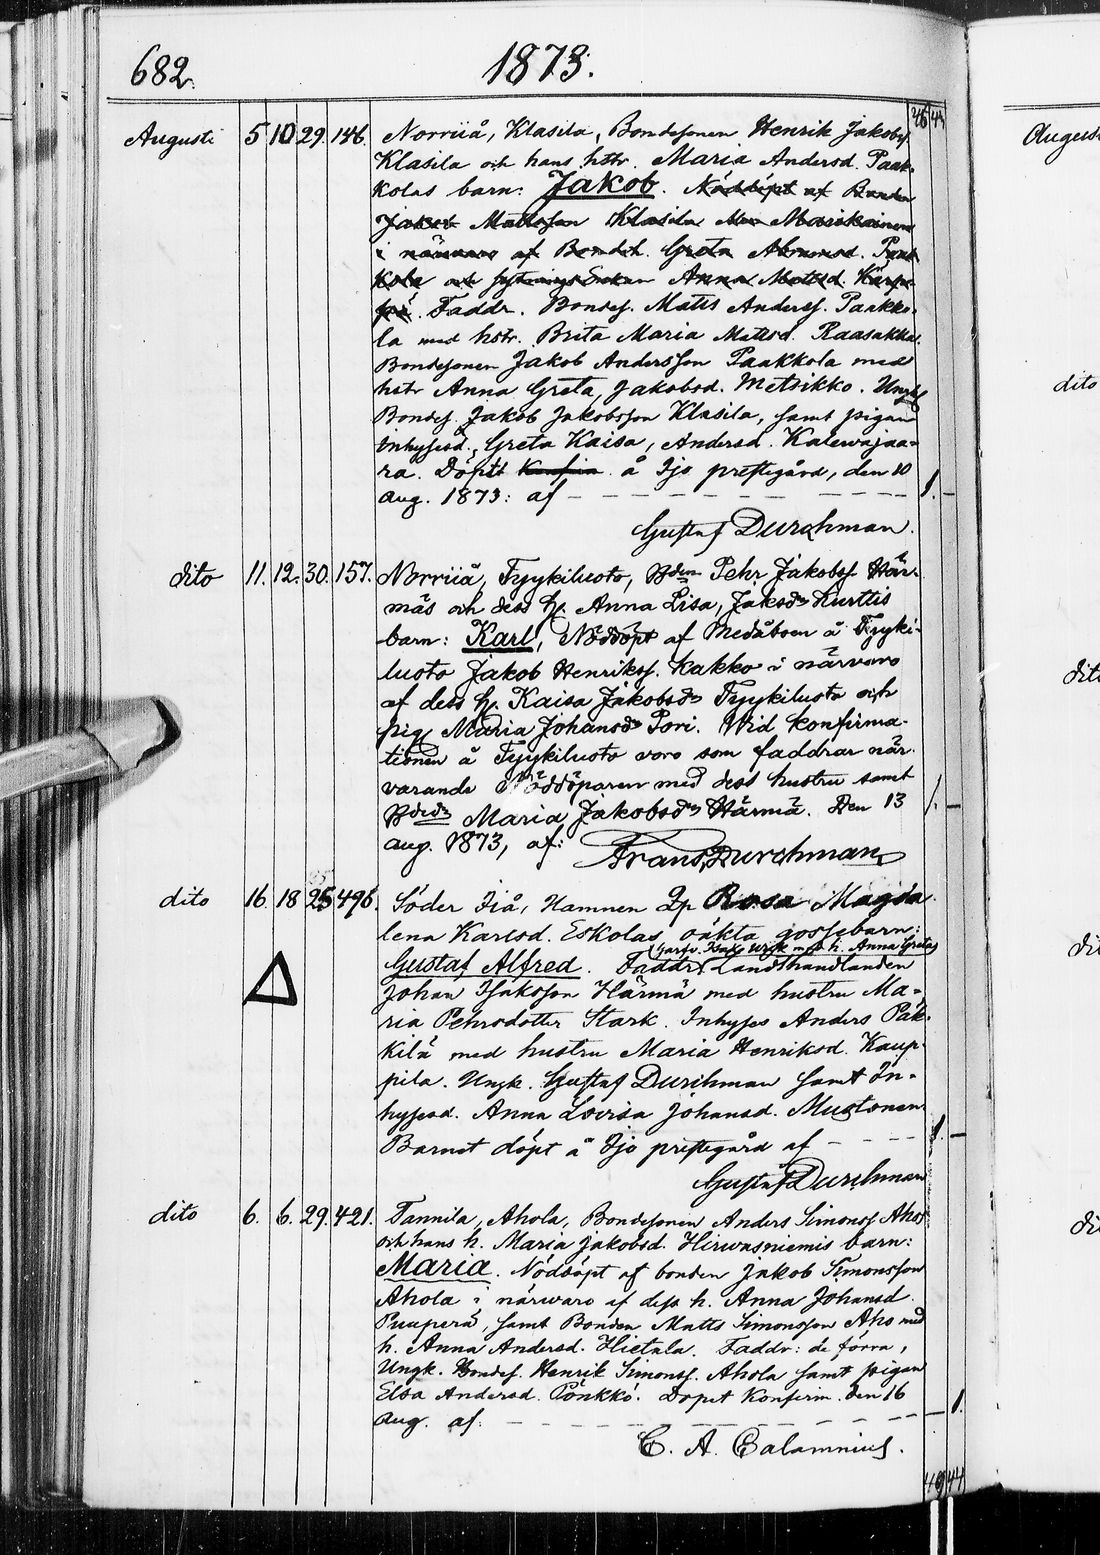 682.
1873.
46 43
Augusti 5 10 29. 146. Norriiå, Klasila, Bondesonen Henrik Jakobss.
Klasila och hans hstr. Maria Andersd. Paak-
kolas barn: Jakob. Nöddöpt af Bonden
Jakob Mattsson Klasila
i närvaro af Bondeh. Greta Abramsd. Paak
kola och Anna Mattsd. Kärp
Faddr. Bondes. Matts Anderss. Paakko-
la med hstr. Brita Maria Mattsd. Raasakka.
Bondesonen Jakob Andersson Paakkola med
hstr Anna Greta, Jakobsd. Metsikko. Ungk
Bondes. Jakob Jakobsson Klasila, samt pigan
inhysesd., Greta Kaisa, Andersd. Kalewajaa-
ra. Döpt Konfirm. å Ijo prestegård, den 10
aug. 1873: af 1. -
Gustaf Durchman.
dito 11. 12. 30. 157. Norriiå, Tyykiluoto, Bden Pehr Jakobss. Här-
mäs och dess h. Anna Lisa, Jaksdr Kurttis
barn: Karl, Nöddöpt af Medåboen å Tyyki-
luoto Jakob Henrikss. Kakko i närvaro
af dess h. Kaisa Jakobsdr Tyykiluoto och
pig. Maria Johansdr Pori. Wid konfirma-
tionen å Tyykiluoto voro som faddrar när-
varande Nöddöparen med dess hustru samt
Bdedr Maria Jakobsdr Härmä. Den 13
aug. 1873, af: 1. -
Frans Durchman
dito 16. 18 25 496. Söder Iiå, Hamnen Qp Rosa Magda
lena Karlsd. Eskolas oäkta gossebarn:
Garfv. Isak Wijk med h. Anna Gretas
Gustaf Alfred. Faddr: Landthandlanden
Johan Isaksson Härmä med hustru Ma-
ria Pehrsdotter Stark. Inhyses Anders Päk-
kilä med hustru Maria Henriksd. Kaup-
pila. Ungk. Gustaf Durchman samt In-
hysesd. Anna Lovisa Johansd. Mustonen
Barnet döpt å Ijo prestegård af 1. -
Gustaf Durchman
dito 6. 6. 29. 421. Tannila, Ahola, Bondesonen Anders Simonss Ahos
och hans h. Maria Jakobsd. Hirwasniemis barn:
Maria. Nöddöpt af bonden Jakob Simonsson
Ahola i närwaro af dess h. Anna Johansd.
Puuperä, samt Bonden Matts Simonsson Aho med
h. Anna Andersd. Hietala. Faddr: de förra,
Ungk. Bondes. Henrik Simonss. Ahola samt pigan
Elsa Andersd. Pönkkö. Dopet Konfirm. den 16
aug. af. - 1.
C. A. Calamnius.
49 44
Augusti
dito